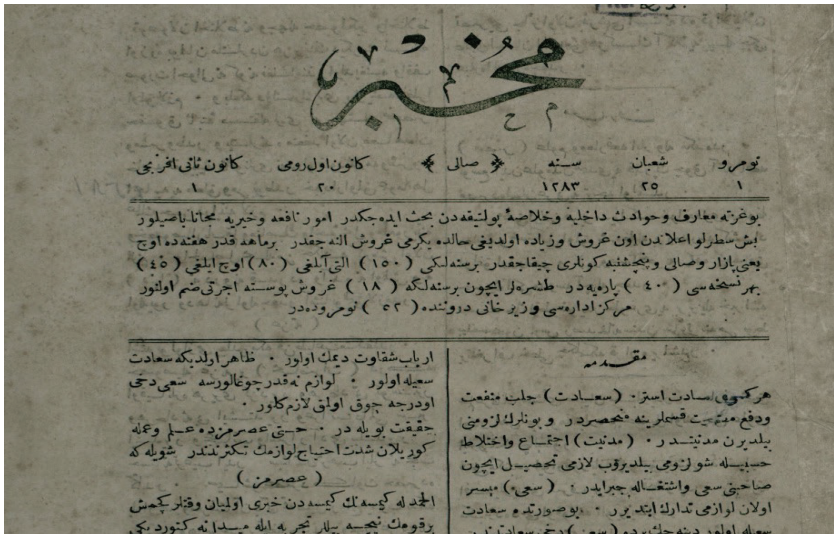 مخبر
نومرو شعبان سنه ﴿ صالی ﴾ كانون اول رومی كانون ثانی افرنجی
١ ٢٥ ١٢٨٣ ٢٠ ١
بو غزته معارف و حوادث داخلیه و خلاصهٔ پولتیقه‌دن بحث ایده‌جكدر امور نافعه و خیریه مجانا باصیلور
بش سطرلو اعلاندن اون غروش و زیاده اولدیغی حالده یكرمی غروش النه جقدر برماهه قدر هفته‌ده اوج
یعنی بازار و صالی و پنچشنبه كونلری چیقاجقدر برسنه‌لكی ( ١٥٠ ) التی آیلغی ( ٨٠ ) اوج ایلغی ( ٤٥ )
بهر نسخه‌سی ( ٤٠ ) پاره‌یه‌در طشره‌لر ایچون برسنه‌لكه ( ١٨ ) غروش پوسته اجرتی ضم اولنور
مركز اداره‌سی وزیر خانی دروننده ( ٥٢ ) نومروده‌در
مقدمه
هر سعادت استر · (سعادت) جلب منفعت
ودفع مضرت قسملرینه منحصردر و بونلرك لزومنی
بیلدیرن مدنیتدر · (مدنیت) اجتماع و اختلاط
حسبیله شو لزومی بیلدیروب لازمی تحصیل ایچون
صاحبنی سعی و اشتغاله جبر ایدر · (سعی) میسر
اولان لوازمی تدارك ایتدیرر · بوصورتده سعادت
سعیله اولور دینه‌جك یرده (سعی) دخی سعادتدن
ارباب شقاوت دیمك اولور · ظاهر اولدیكه سعادت
سعیله اولور · لوازم نه قدر چوغالورسه سعی دخی
اودرجه چوق اولمق لازم كلور ·
حقیقت بویله در · حتی عصرمزده علم و عمله
كوریلان شدت احتیاج لوازمك تكثرندندر شویله كه
( عصرمز )
الحمد لله كیمسه‌نك كیمسه‌دن خبری اولمیان وقتلر كچمش
برقومك نیجه بیللر تجربه ایله میدانه كتوردیكی